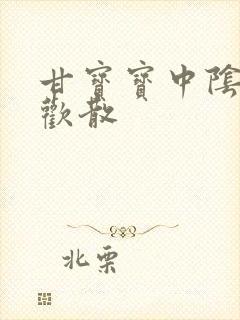 甘寶寶中陰
歡散
北栗